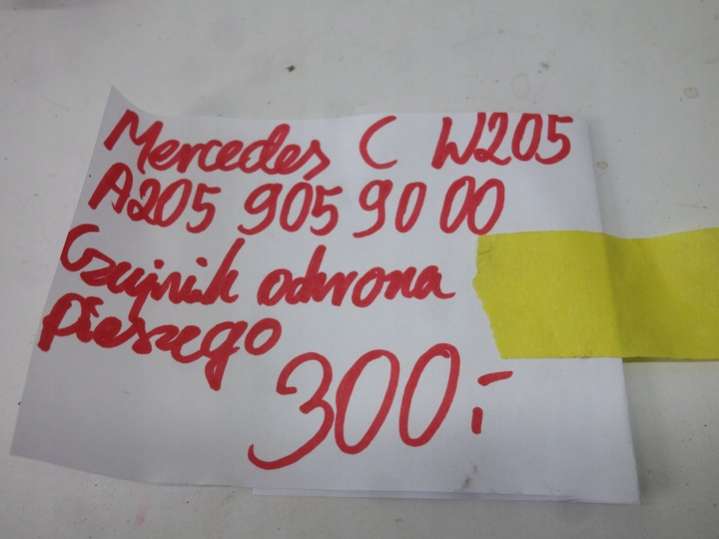 Mercedes C W205
A205 905 90 00
Czujnik ochrona
pieszego
300,-